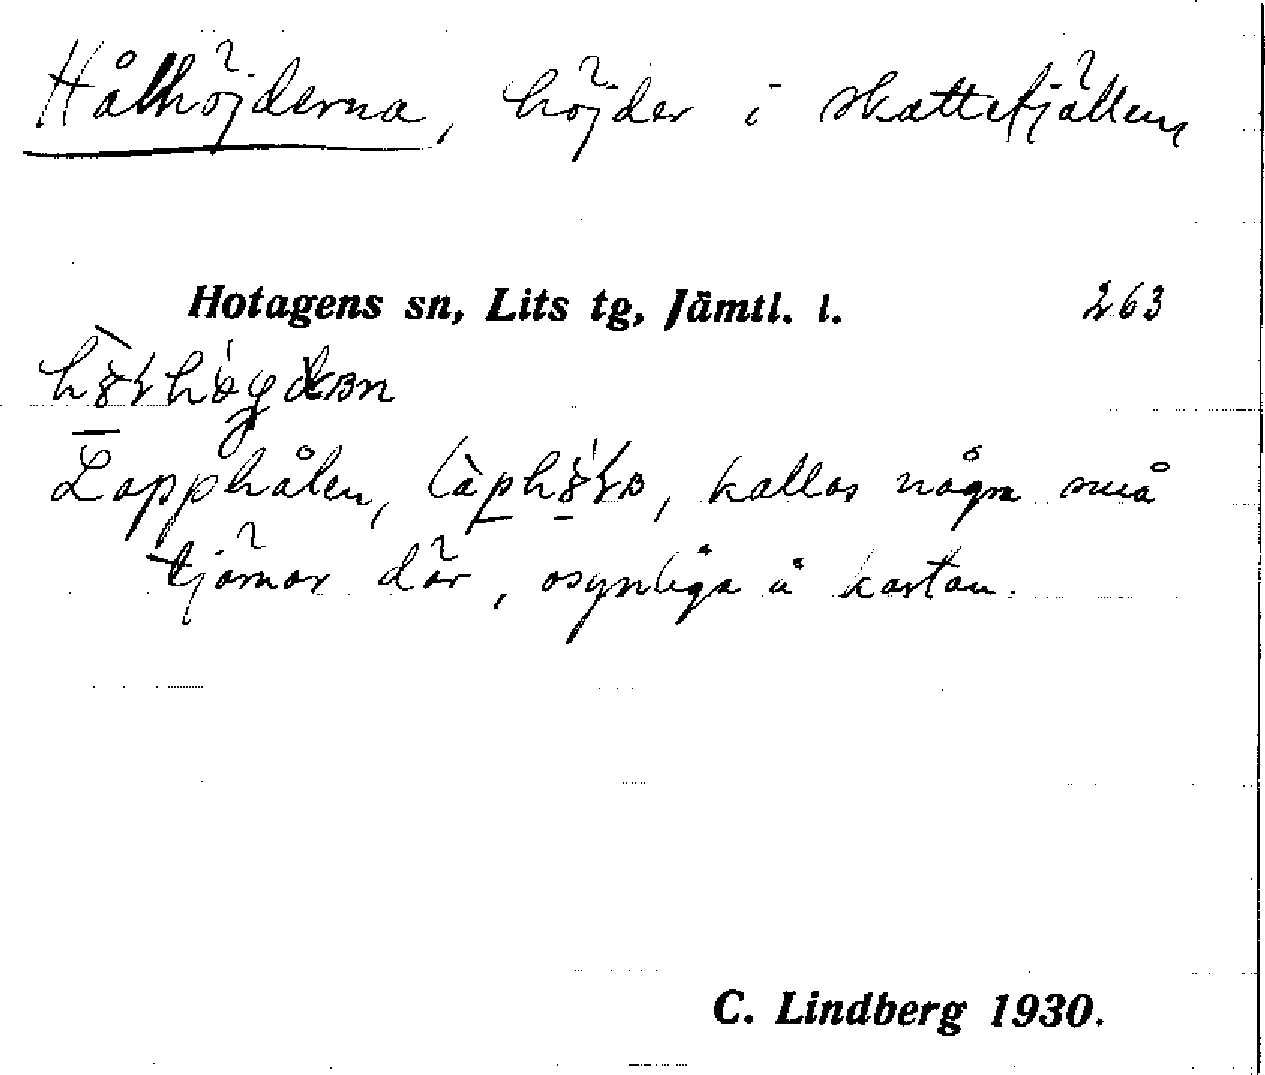 Hålhöjderna, höjder i skattefjällen
Hotagens sn, Lits tg, Jämtl. l. 263
Lapphålen, kallas några små
tjärnar där, osynliga å kartan.
C. Lindberg 1930.